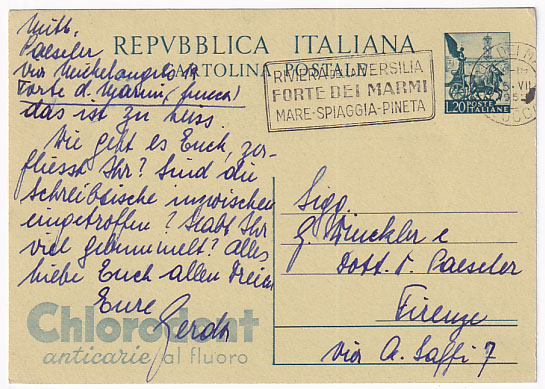 Mitt.
Paeseler
Via Michelangelo 19
Forte d. Marmi, (Lucca)
REPVBBLICA ITALIANA
CARTOLINA POSTALE
RIVIERA DI VERSILIA
FORTE DEI MARMI
MARE-SPIAGGIA-PINETA
L.20 POSTE ITALIANE
das ist zu heiss.
Wie geht es Euch, zer-
fliesst Ihr? Sind die
Schreibtische inzwischen
eingetroffen? Habt Ihr
viel gebummelt? Alles
liebe Euch allen Dreien
Eure
Gerda
Chlorodont
anticarie al fluoro
Sigg.
G. Winckler e
Dott. Paeseler
Firenze
Via A. Saffi 7